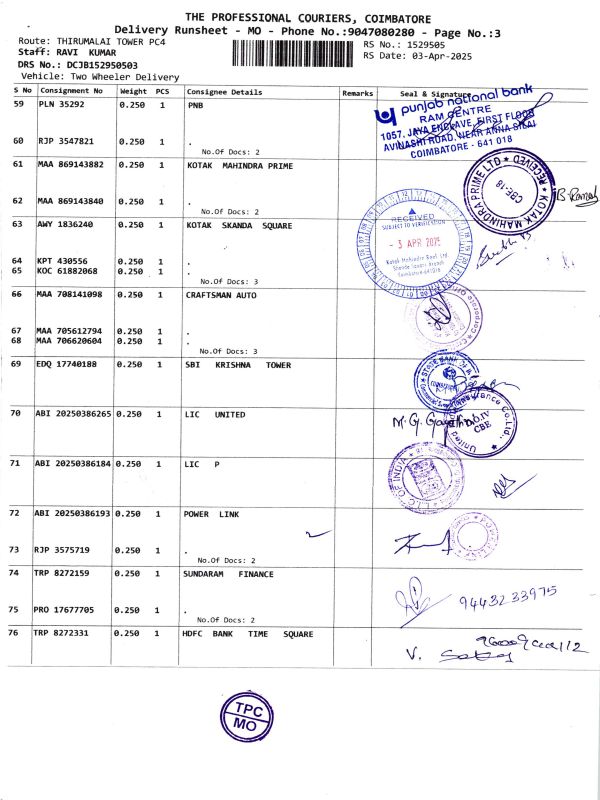 THE PROFESSIONAL COURIERS, COIMBATORE
Delivery Runsheet - MO - Phone No.:9047080280 - Page No.:3
Route: THIRUMALAI TOWER PC4
RS No.: 1529505
Staff: RAVI KUMAR
RS Date: 03-Apr-2025
DRS No.: DCJB152950503
Vehicle: Two Wheeler Delivery
S No Consignment No Weight PCS Consignee Details Remarks Seal & Signature
59 PLN 35292 0.250 1 PNB
punjab national bank
RAM CENTRE
1057, JAYA ENCLAVE, FIRST FLOOR
AVINASHI ROAD, NEAR ANNA SILAI
COIMBATORE - 641 018
60 RJP 3547821 0.250 1 .
No.Of Docs: 2
61 MAA 869143882 0.250 1 KOTAK MAHINDRA PRIME
KOTAK MAHINDRA PRIME LTD ★ RECEIVED ★
CBE-18
62 MAA 869143840 0.250 1 .
No.Of Docs: 2
63 AWY 1836240 0.250 1 KOTAK SKANDA SQUARE
RECEIVED
SUBJECT TO VERIFICATION
- 3 APR 2025
Kotak Mahindra Bank Ltd.
Coimbatore-641018
64 KPT 430556 0.250 1 .
65 KOC 61882068 0.250 1 .
No.Of Docs: 3
66 MAA 708141098 0.250 1 CRAFTSMAN AUTO
67 MAA 705612794 0.250 1 .
68 MAA 706620604 0.250 1 .
No.Of Docs: 3
69 EDQ 17740188 0.250 1 SBI KRISHNA TOWER
STATE BANK
70 ABI 20250386265 0.250 1 LIC UNITED
D.O.IV
CBE
71 ABI 20250386184 0.250 1 LIC P
L.I.C OF INDIA
72 ABI 20250386193 0.250 1 POWER LINK
73 RJP 3575719 0.250 1 .
No.Of Docs: 2
74 TRP 8272159 0.250 1 SUNDARAM FINANCE
9443233975
75 PRO 17677705 0.250 1 .
No.Of Docs: 2
76 TRP 8272331 0.250 1 HDFC BANK TIME SQUARE
TPC
MO